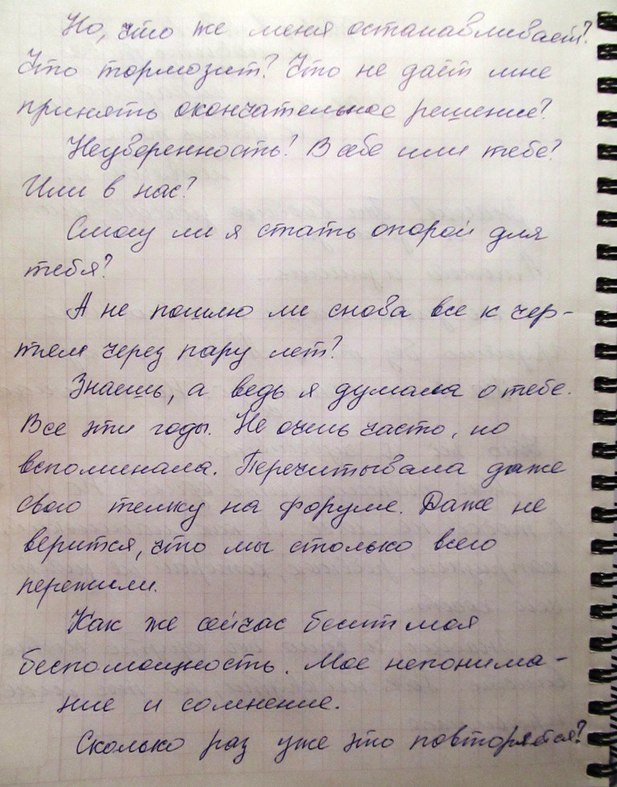 Но, что же меня останавливает?
Что тормозит? Что не даёт мне
принять окончательное решение?
Неуверенность? В себе или тебе?
Или в нас?
Смогу ли я стать опорой для
тебя?
А не пошлю ли снова все к чер-
тям через пару лет?
Знаешь, а ведь я думала о тебе.
Все эти годы. Не очень часто, но
вспоминала. Перечитывала даже
свою темку на форуме. Даже не
верится, что мы столько всего
пережили.
Как же сейчас бесит моя
беспомощность. Мое непонима-
ние и сомнение.
Сколько раз уже это повторяется?